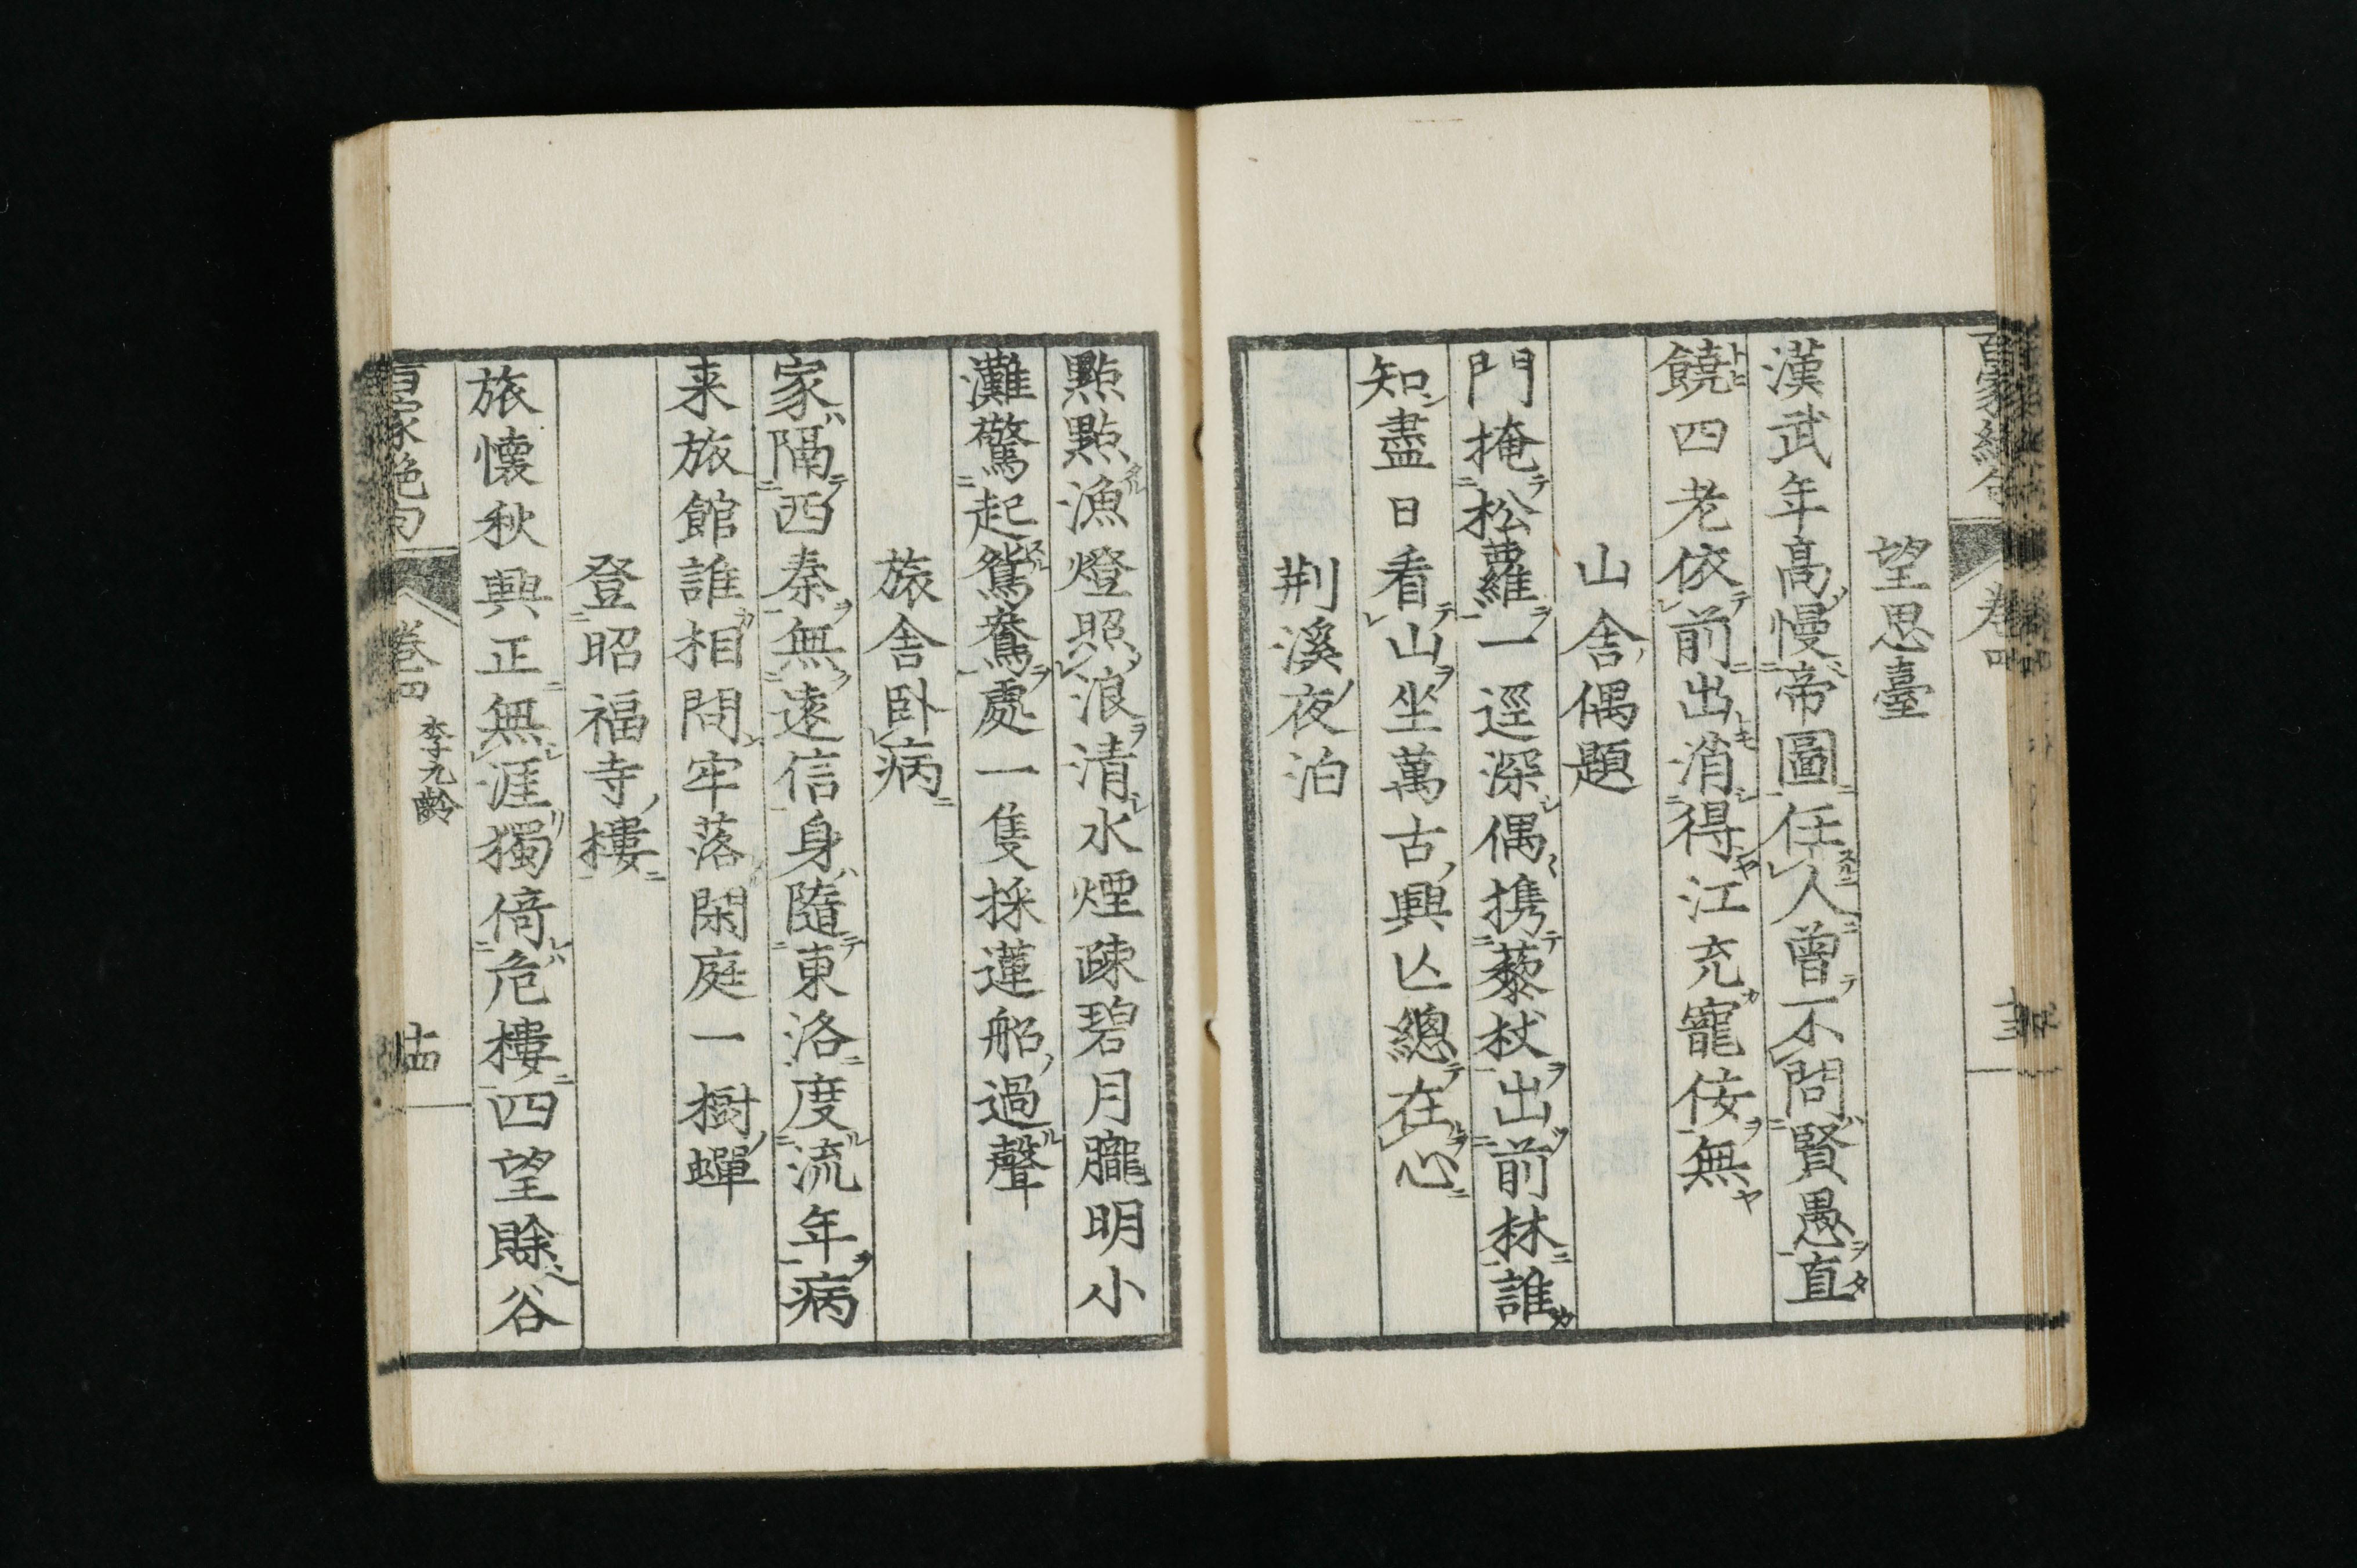 百家絶句 卷四
望思臺
漢武年高慢帝圖任人曾不問賢愚直
饒四老依前出消得江充寵佞無
山舍偶題
門掩松蘿一逕深偶携藜杖出前林誰
知盡日看山坐萬古興亾總在心
荆溪夜泊
點點漁燈照浪清水煙疎碧月朧明小
灘驚起鴛鴦處一隻採蓮船過聲
旅舍卧病
家隔西秦無遠信身隨東洛度流年病
来旅館誰相問牢落閑庭一樹蟬
登昭福寺樓
旅懷秋興正無涯獨倚危樓四望賖谷
百家絶句 卷四 李九齡 十四